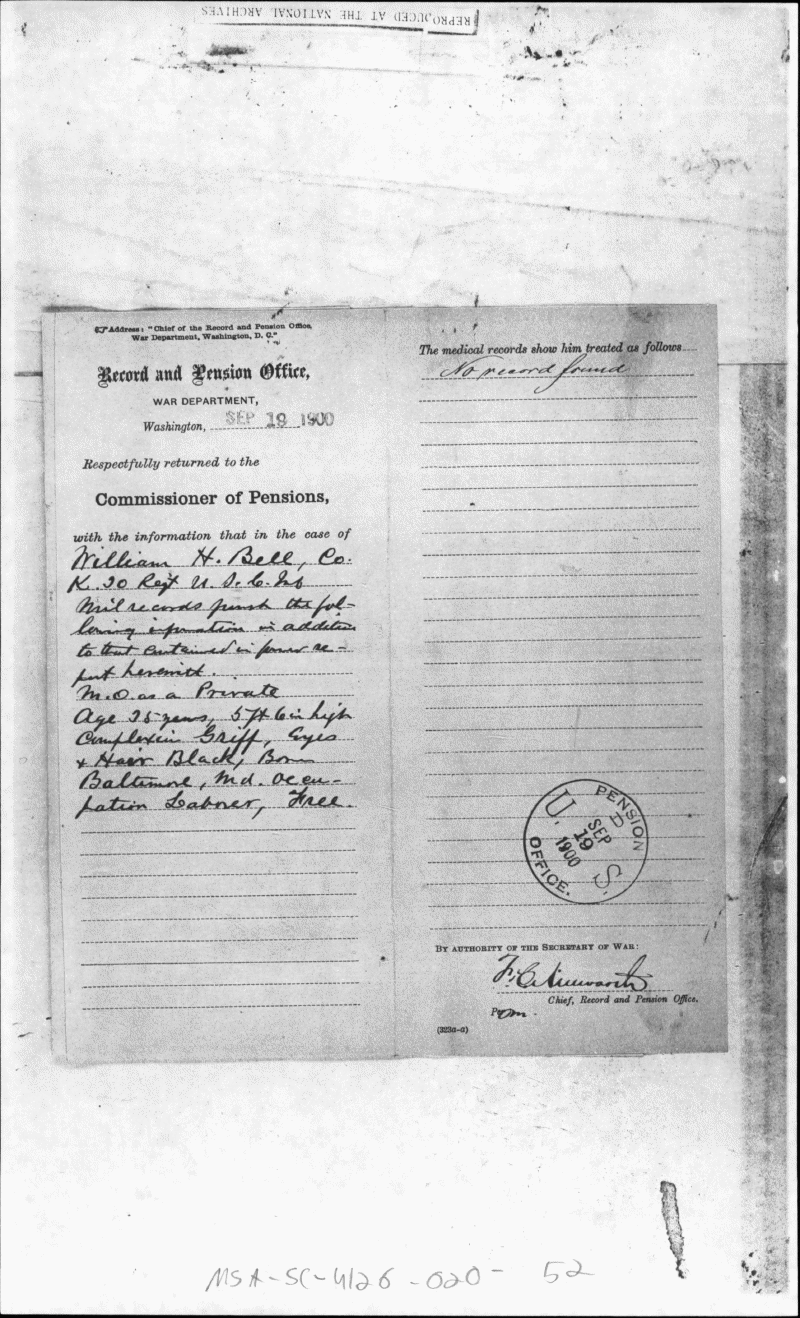 REPRODUCED AT THE NATIONAL ARCHIVES
Address: "Chief of the Record and Pension Office,
War Department, Washington, D. C."
Record and Pension Office,
WAR DEPARTMENT,
Washington, SEP 19 1900
Respectfully returned to the
Commissioner of Pensions,
with the information that in the case of
William H. Bell, Co.
K. 30 Regt U. S. C. Inf
Mil records furnish the fol-
lowing information in addition
to that contained in former re-
port herewith.
M.O. as a Private
Age 25 years, 5 ft 6 in high
Complexion Griff, Eyes
& Hair Black, Born
Baltimore, Md. Occu-
pation Laborer, Free.
The medical records show him treated as follows
No record found
U. S. PENSION OFFICE.
SEP
19
1900
BY AUTHORITY OF THE SECRETARY OF WAR:
F. C. Ainsworth
Chief, Record and Pension Office.
Per
(323a-a)
MSA-SC-4126-020- 52